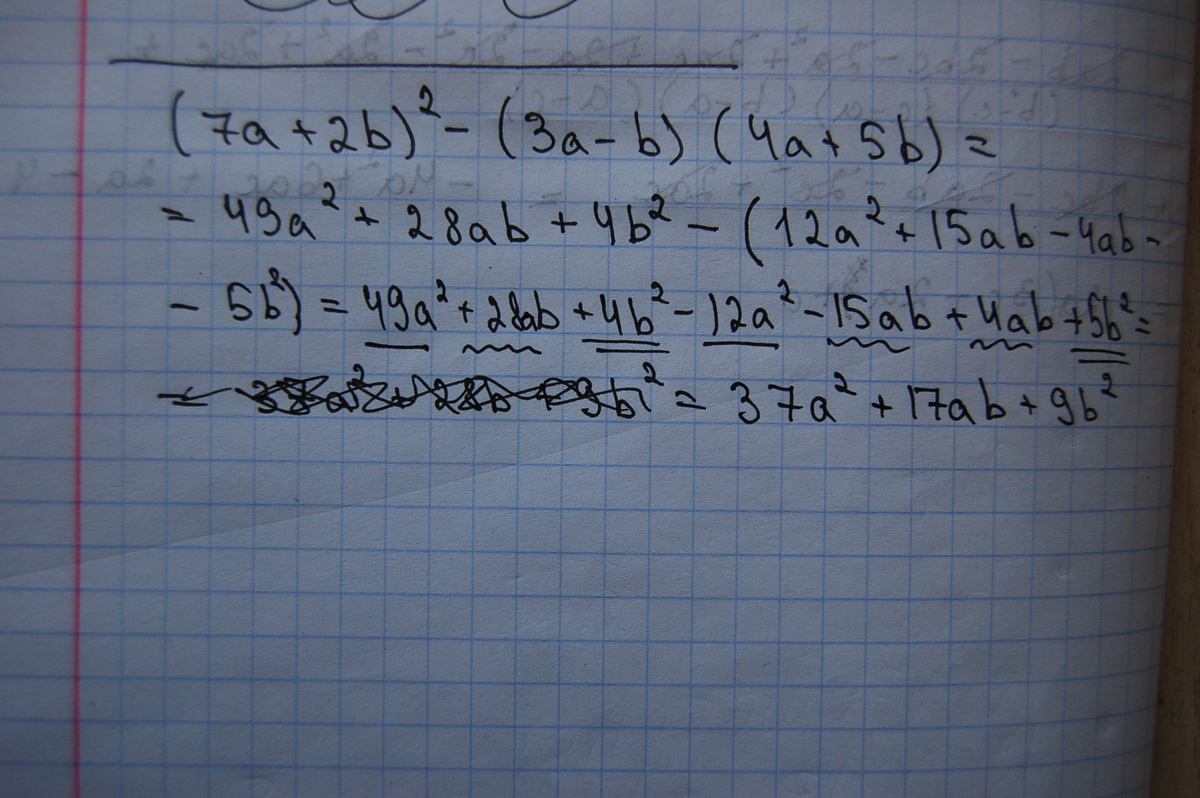 (7a + 2b)² - (3a - b) (4a + 5b) =
= 49a² + 28ab + 4b² - (12a² + 15ab - 4ab -
- 5b²) = 49a² + 28ab + 4b² - 12a² - 15ab + 4ab + 5b² =
= 37a² + 17ab + 9b²